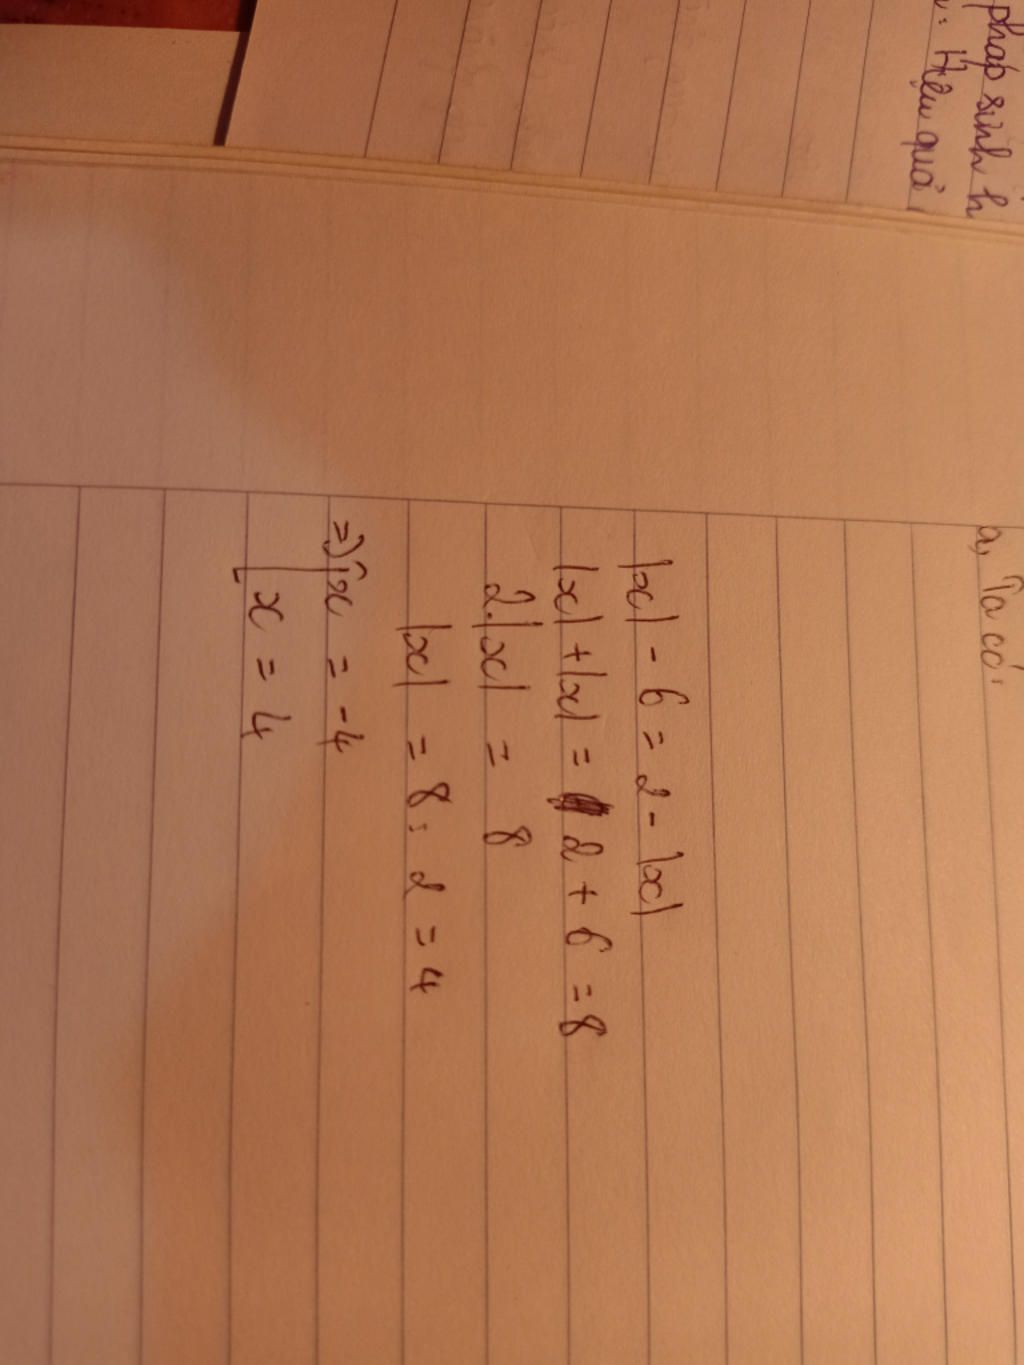 phap sinh h
: Hiệu quả
a, Ta có:
|x| - 6 = 2 - |x|
|x| + |x| = 2 + 6 = 8
2.|x| = 8
|x| = 8 : 2 = 4
=> [x = -4
[x = 4